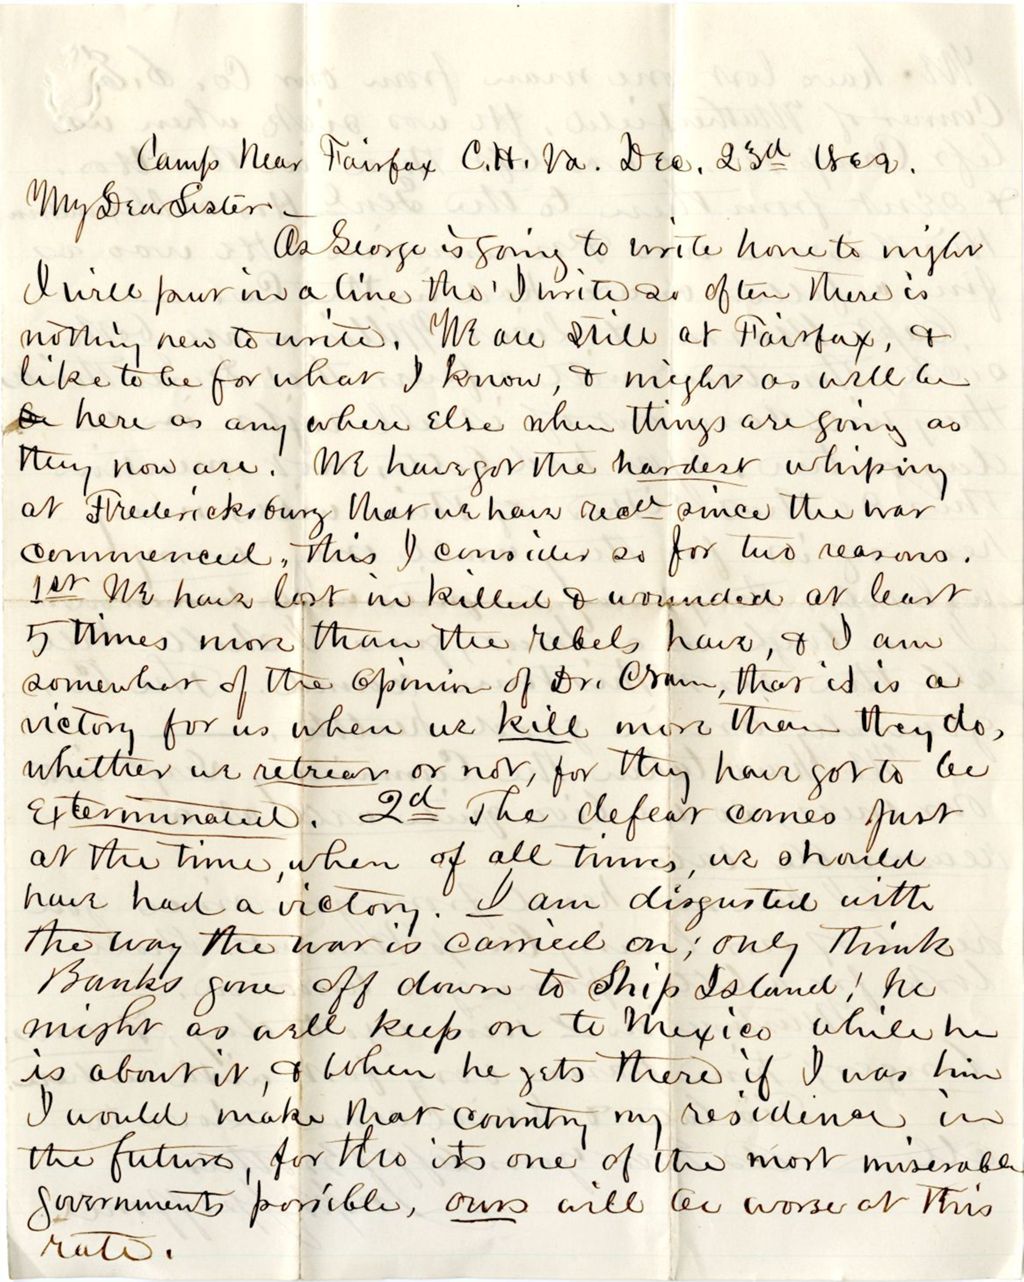 Camp Near Fairfax C.H. Va. Dec. 23d 1862.
My Dear Sister—
As George is going to write home to night
I will put in a line tho' I write so often there is
nothing new to write. We are still at Fairfax, &
like to be for what I know, & might as well be
be here as any where else when things are going as
they now are. We have got the hardest whiping
at Fredericksburg that we have recd since the war
commenced, this I consider so for two reasons.
1st We have lost in killed & wounded at least
5 times more than the rebels have, & I am
somewhat of the opinion of Dr. Cram, that it is a
victory for us when we kill more than they do,
whether we retreat or not, for they have got to be
exterminated. 2d The defeat comes just
at the time, when of all times, we should
have had a victory. I am disgusted with
the way the war is carried on; only think
Banks gone off down to Ship Island! he
might as well keep on to Mexico while he
is about it, & when he gets there if I was him
I would make that country my residence in
the future, for tho its one of the most miserable
governments possible, ours will be worse at this
rate.